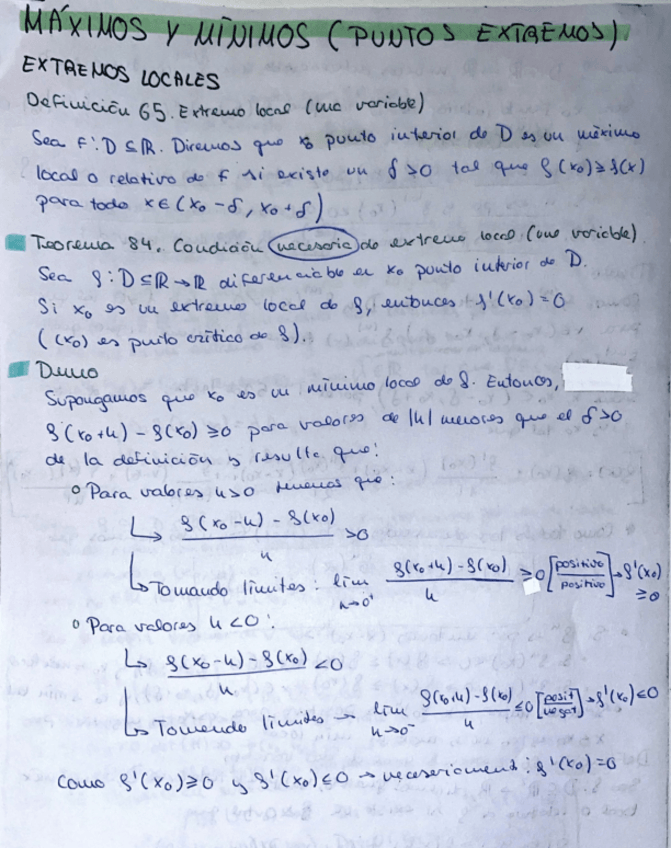 MÁXIMOS Y MÍNIMOS (PUNTOS EXTREMOS)
EXTREMOS LOCALES
Definición 65. Extremo local (una variable)
Sea f: D ⊆ R. Diremos que x₀ punto interior de D es un máximo
local o relativo de f si existe un δ > 0 tal que f(x₀) ≥ f(x)
para todo x ∈ (x₀ - δ, x₀ + δ)
Teorema 84. Condición necesaria de extremo local (una variable).
Sea f: D ⊆ R → R diferenciable en x₀ punto interior de D.
Si x₀ es un extremo local de f, entonces f'(x₀) = 0
((x₀) es punto crítico de f).
Demo
Supongamos que x₀ es un mínimo local de f. Entonces,
f(x₀+h) - f(x₀) ≥ 0 para valores de |h| menores que el δ > 0
de la definición y resulta que:
o Para valores h > 0 tenemos que:
↳ f(x₀-h) - f(x₀) / h > 0
↳ Tomando límites: lim h→0⁺ f(x₀+h) - f(x₀) / h ≥ 0 [positivo / positivo] → f'(x₀) ≥ 0
o Para valores h < 0:
↳ f(x₀-h) - f(x₀) / h < 0
↳ Tomando límites → lim h→0⁻ f(x₀+h) - f(x₀) / h ≤ 0 [posit / negat] → f'(x₀) ≤ 0
Como f'(x₀) ≥ 0 y f'(x₀) ≤ 0 → necesariament: f'(x₀) = 0